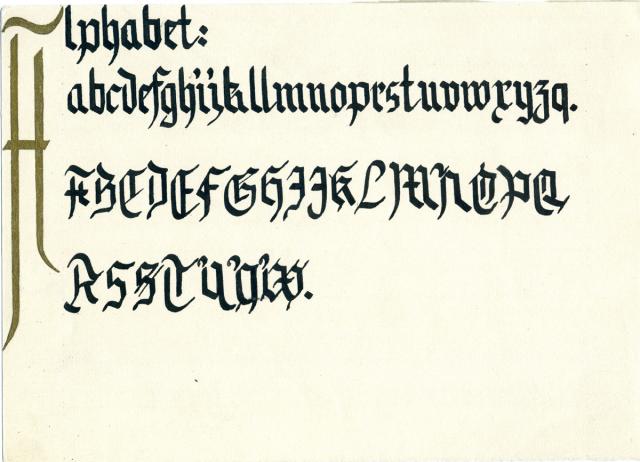 Alphabet:
abcdefghijkllmnoprstuvwxyzq.
ABCDEFGHIJKLMNOPQ
RSSTUVW.